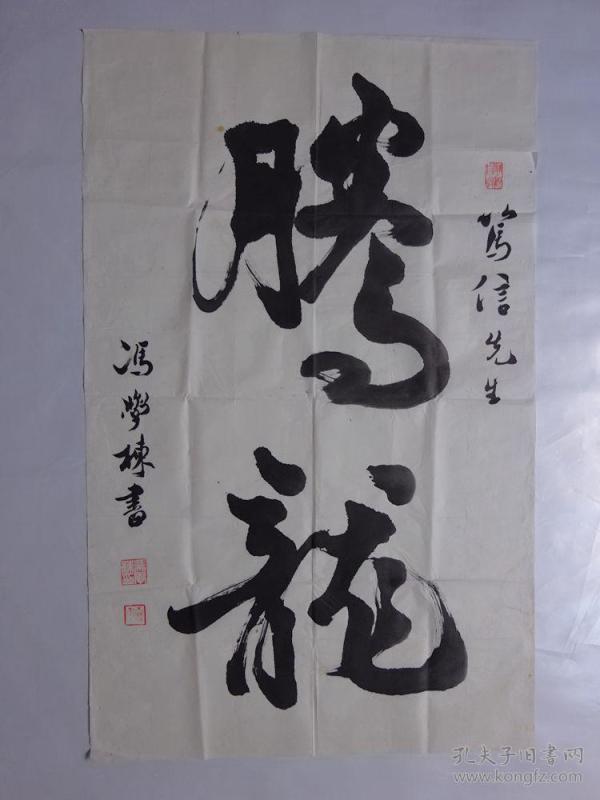 篤信先生
騰龍
馮學棟書
孔夫子旧书网
www.kongfz.com